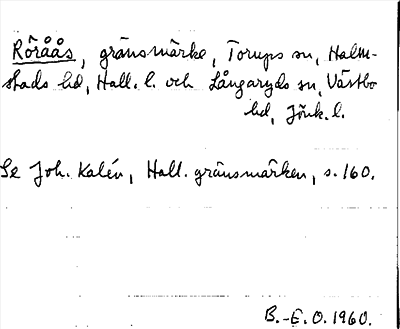 Röråås, gränsmärke, Torups sn, Halm-
stads hd, Hall. l. och Långaryds sn, Västbo
hd, Jönk. l.
Se Joh. Kalén, Hall. gränsmärken, s. 160.
B.-E. O. 1960.